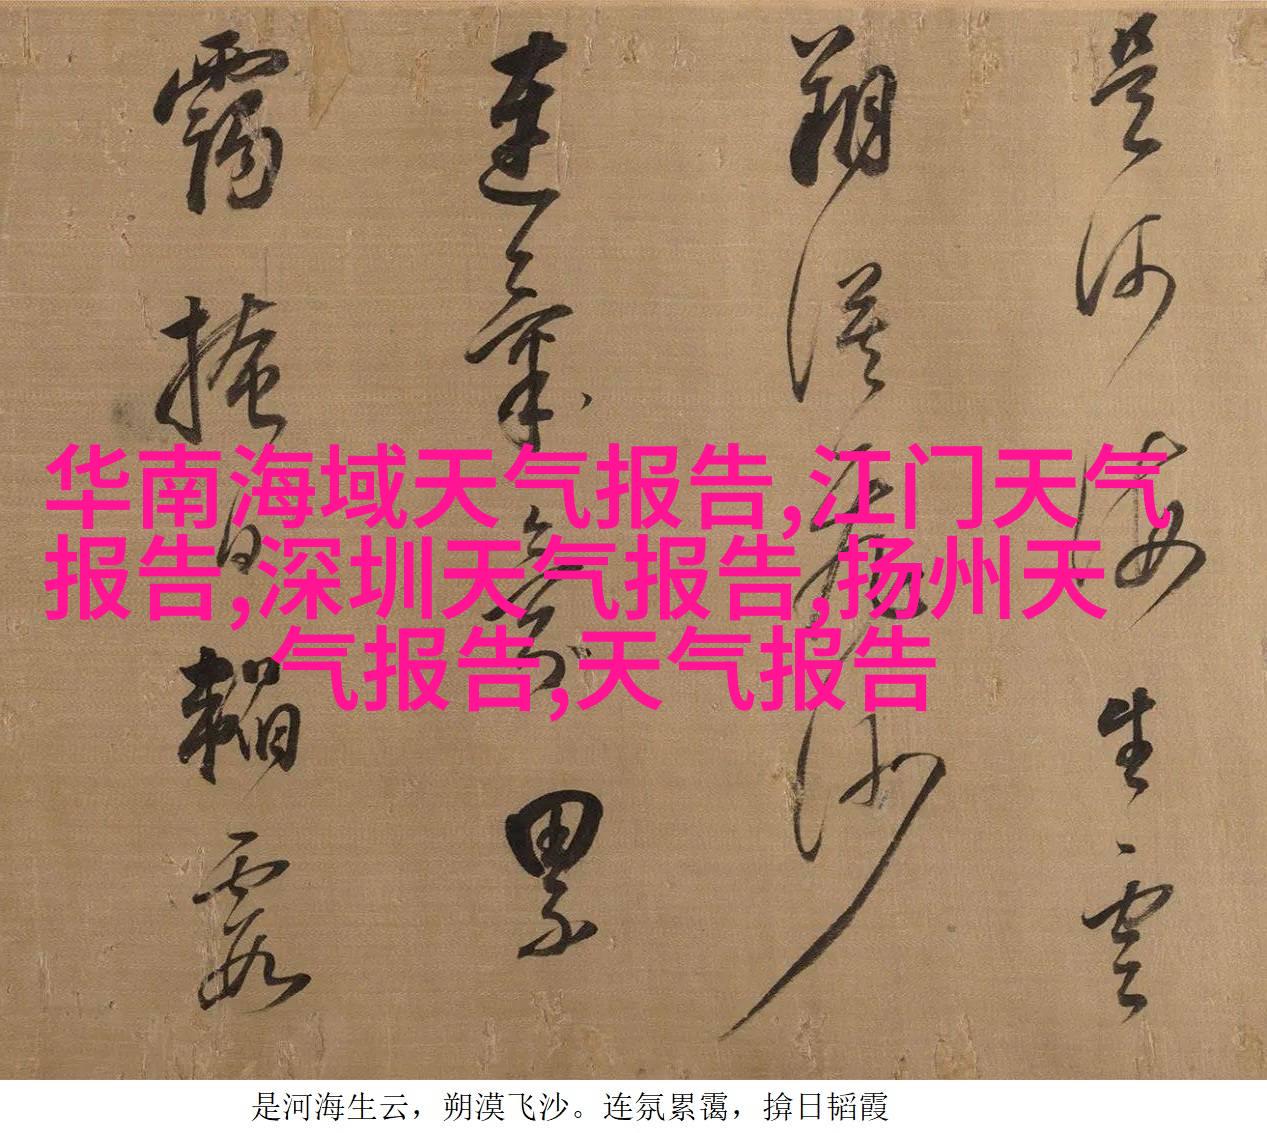 是河海生雲
朔漠飛沙
連氣氛累
靄掩日韜霞
华南海域天气报告,江门天气
报告,深圳天气报告,扬州天
气报告,天气报告
是河海生云，朔漠飞沙。连氛累霭，揜日韬霞